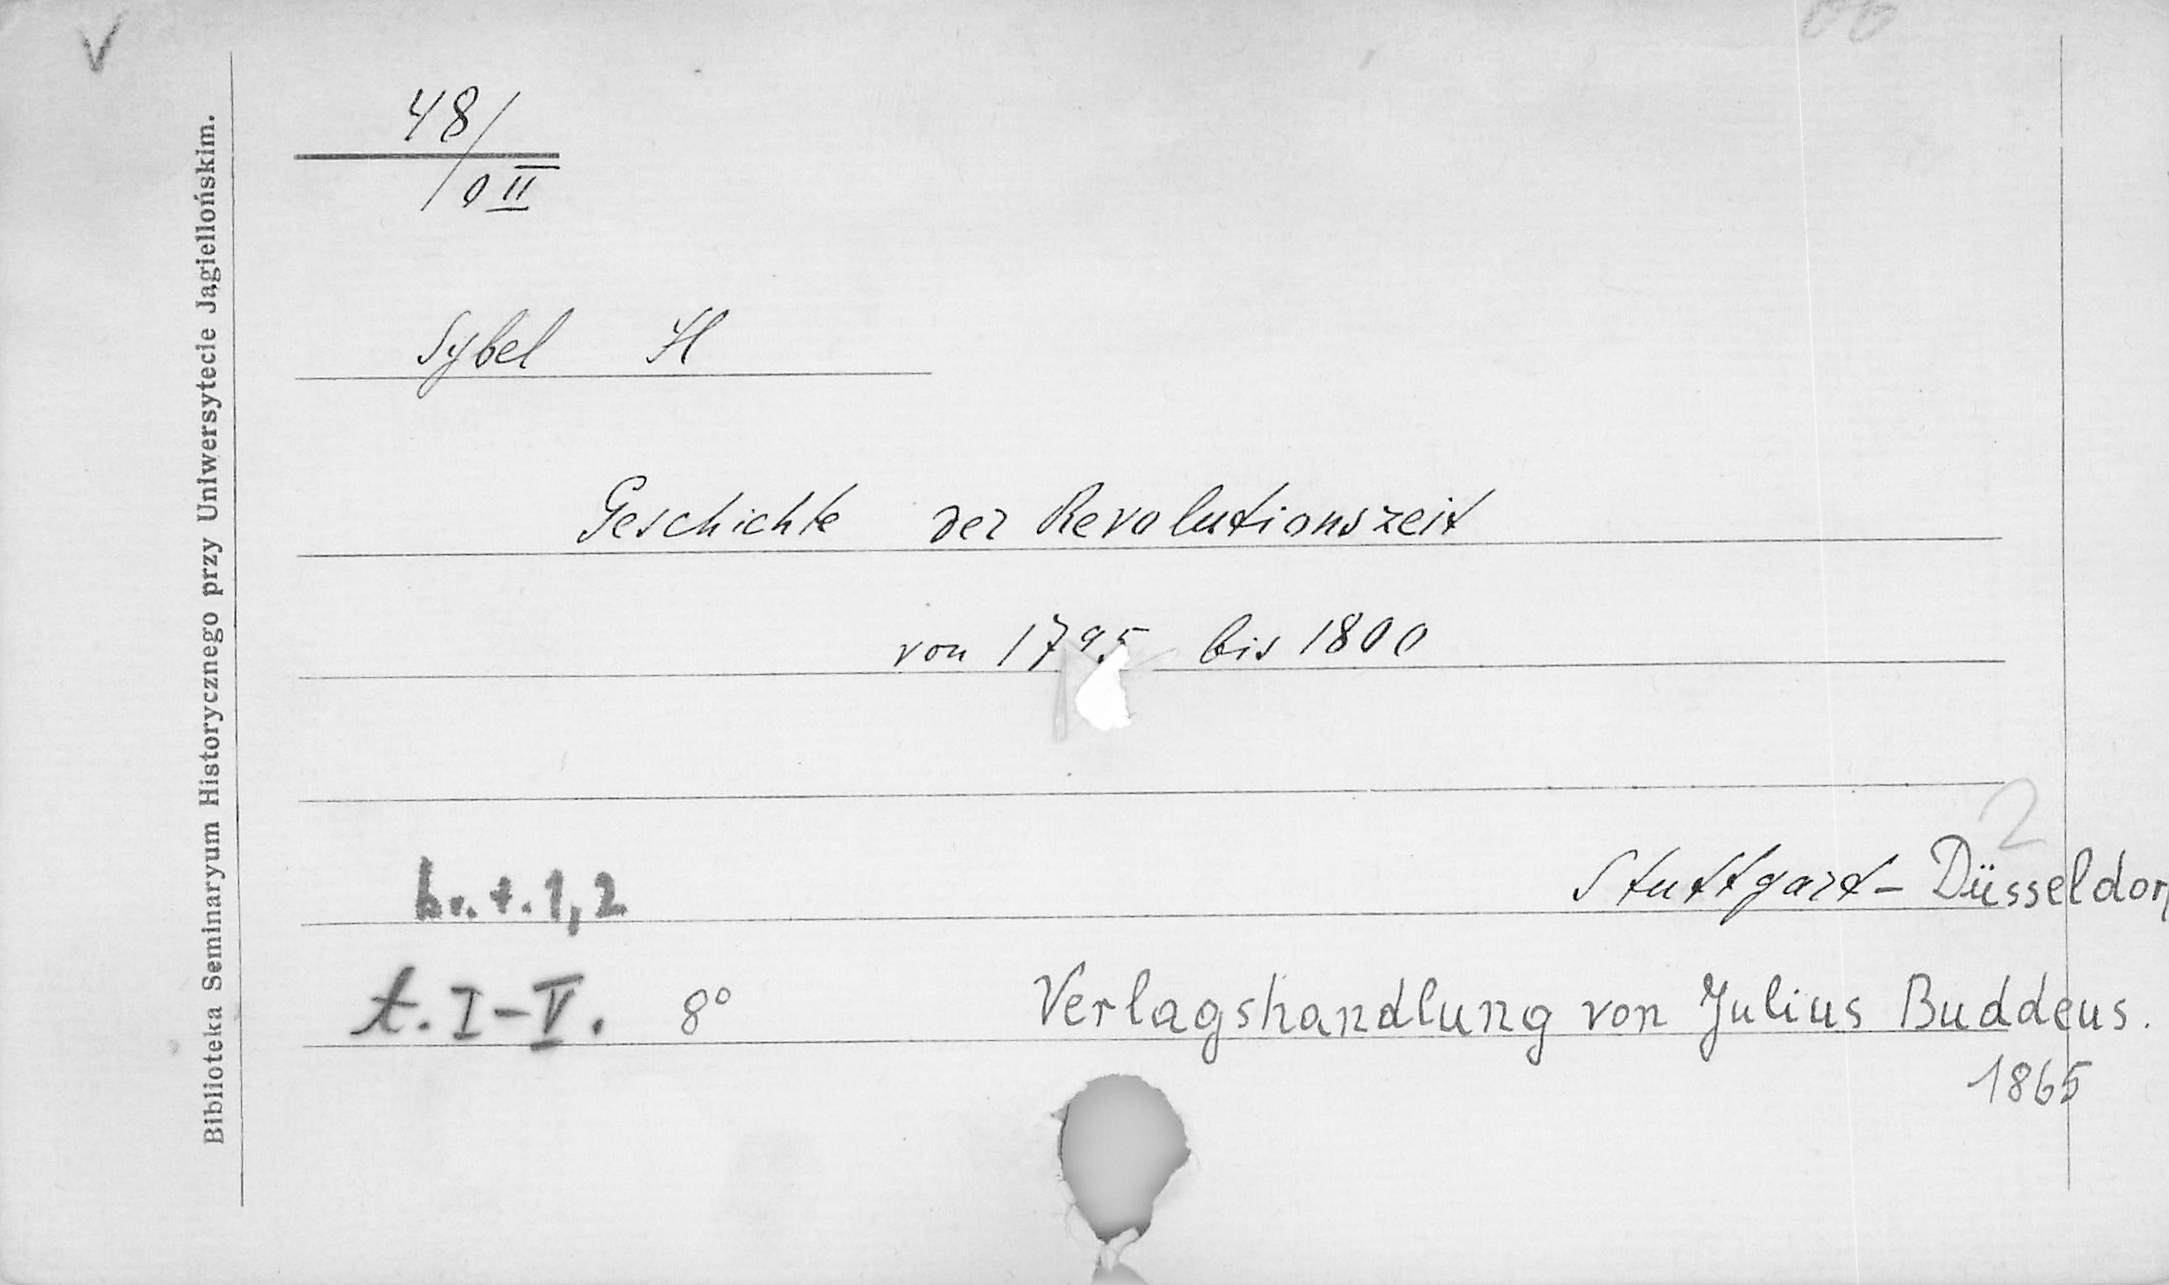 V
48/
0 II
Sybel H
Geschichte der Revolutionszeit
von 1795 bis 1800
2
br. t. 1, 2
Stuttgart - Düsseldor
t. I-V. 8°
Verlagshandlung von Julius Buddeus.
1865
Biblioteka Seminaryum Historycznego przy Uniwersytecie Jagiellońskim.